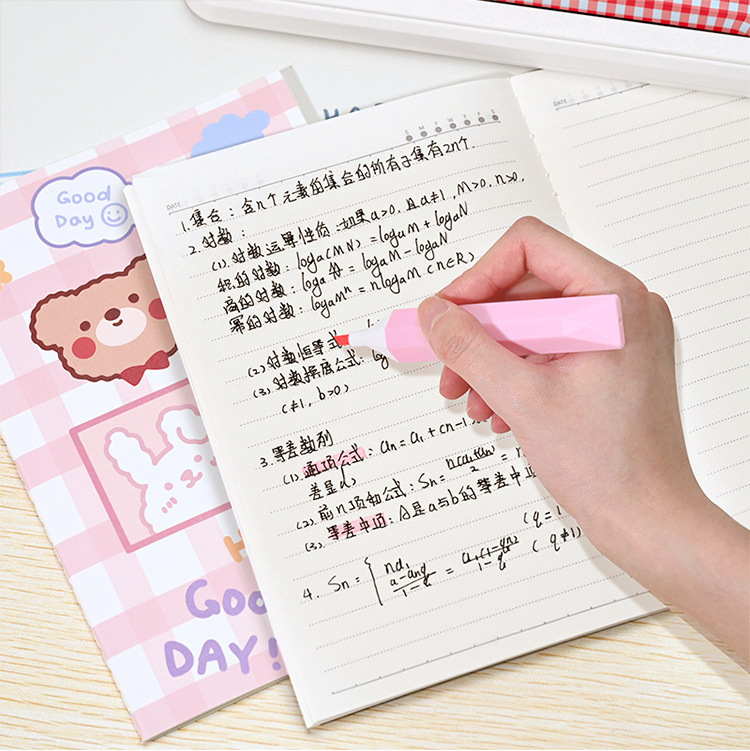 Good
Day
Good
DAY!
DATE
S M T W T F S
1.集合:含n个元素的集合的所有子集有2n个.
2.对数:
(1).对数运算性质:如果a>0,且a≠1,M>0,n>0,
积的对数:loga(MN)=logaM+logaN
商的对数:loga =logaM-logaN
幂的对数:logaMⁿ=nlogaM(n∈R)
(2)对数恒等式
(3).对数换底公式:log
(≠1,b>0)
3.等差数列
(1).通项公式:an=a1+cn-1
差是d)
(2)前n项和公式:Sn= =
(3).等差中项:A是a与b的等差中项
(q=1
4. Sn={ na1
(q≠1)
DATE